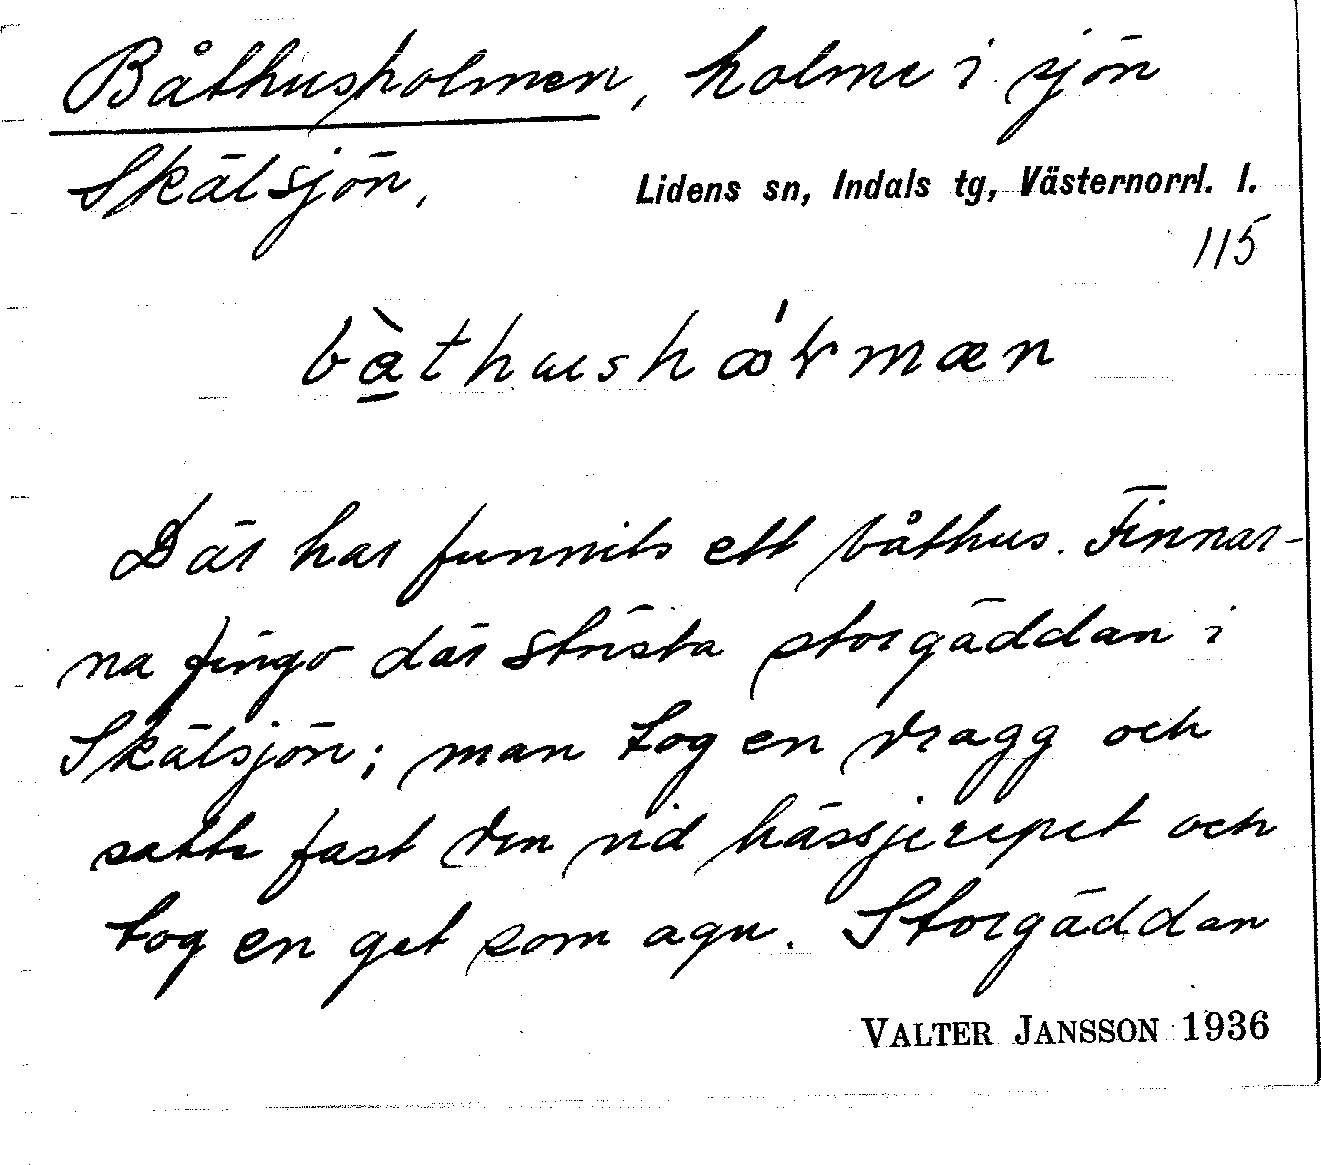 Båthusholmen, holme i sjön
Skälsjön,
Lidens sn, Indals tg, Västernorrl. l.
115
Där har funnits ett båthus. Finnar-
na fingo där strista storgäddan i
Skälsjön; man tog en dragg och
satte fast den vid hässjerepet och
tog en get som agn. Storgäddan
VALTER JANSSON 1936